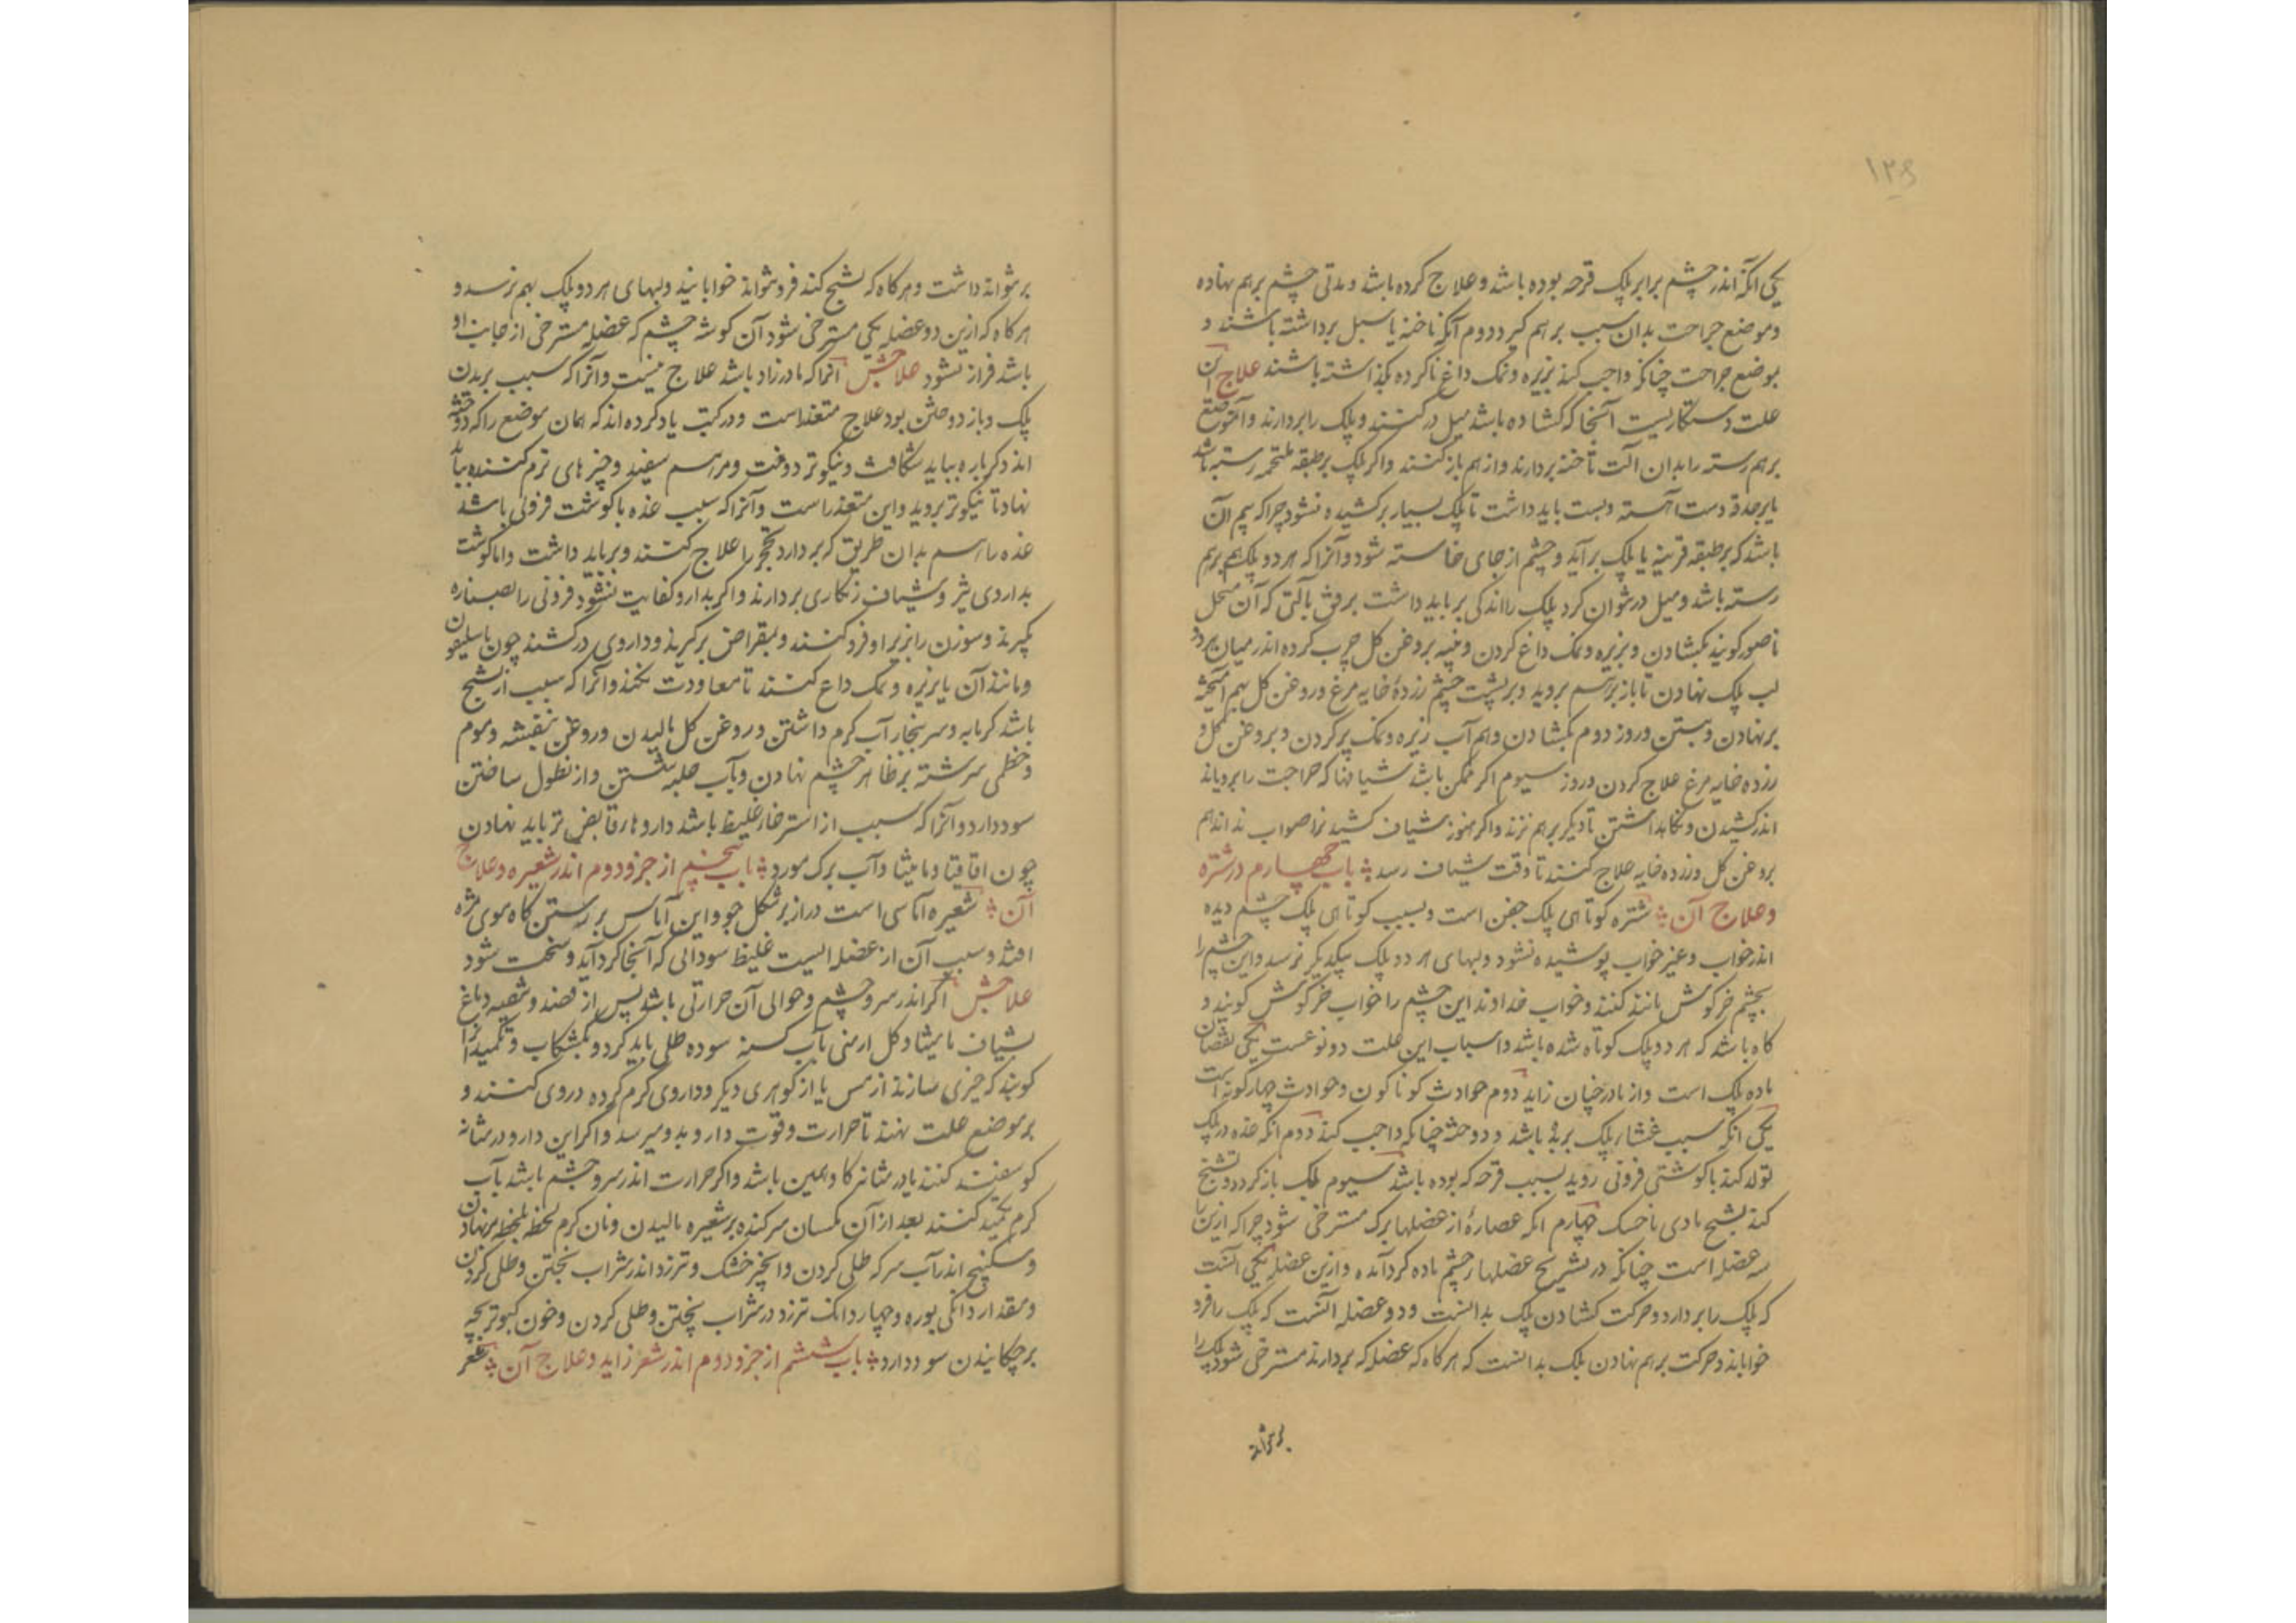 ۱۲۹
یکی انکه اندر چشم برابر پلک قرحه بوده باشد و علاج کرده باشد و مدتی چشم برهم نهاده
و موضع جراحت بدان سبب برهم گیرد دوم آنکه ناخنه یا سبل برداشته باشند و
بوضع جراحت چنانکه واجب کند بزیره و نمک داغ ناکرده بگذاشته باشند علاج این
علت دستکاریست آنجا که کشاده باشد میل در کنند و پلک را بردارند و آن موضع
برهم رسته را بدان الت ناخنه بردارند و از هم باز کنند و اکر پلک بر طبقه ملتحمه رسته باشد
یا بر حدقه دست آهسته و بست باید داشت تا پلک بسیار برکشیده نشود چراکه بیم آن
باشد که بر طبقه قرنیه یا پلک برآید و چشم از جای خاسته شود و آنرا که هر دو پلک بهم برهم
رسته باشد و میل در نتوان کرد پلک را اندکی بر باید داشت برفق بالتی که آن منجل
ناصور کویند بکشادن و بزیره و نمک داغ کردن و پنبه بروغن کل چرب کرده اندر میان هر دو
لب پلک نهادن تا باز برهم نروید و بر پشت چشم زردهٔ خایه مرغ و روغن کل بهم آمیخته
بر نهادن و بستن و روز دوم بکشادن و هم آب زیره و نمک پر کردن و بروغن کل و
زرده خایه مرغ علاج کردن و روز سیوم اکر ممکن باشد شیافها که جراحت را برویاند
اندر کشیدن و نکاهداشتن تا دیکر برهم نزند و اکر هنوز شیاف کشیدن را صواب ندانند هم
بروغن کل و زرده خایه علاج کنند تا وقت شیاف رسد باب چهارم در شتره
و علاج آن شتره کوتاهی پلک جفن است و بسبب کوتاهی پلک چشم دیده
اندر خواب و غیر خواب پوشیده نشود و لبهای هر دو پلک بیکدیکر نرسد و این چشم را
بچشم خرکوش مانند کنند و خواب خداوند این چشم را خواب خرکوش کویند و
کاه باشد که هر دو پلک کوتاه شده باشد و اسباب این علت دو نوعست یکی نقصان
ماده پلک است و از مادر چنان زاید دوم حوادث کوناکون و حوادث چهار کونه است
یکی انکه سبب غشار پلک برید باشد و دوخته چنانکه واجب کند دوم انکه غده در پلک
تولد کند یا کوشتی فزونی روید بسبب قرحه که بوده باشد سیوم پلک باز کردد و تشنج
کند تشنج مادی یا خشک چهارم انکه عصارهٔ از عضلها برک مسترخی شود چراکه ازین
سه عضله است چنانکه در تشریح عضلهار چشم یاده کرد آمده و ازین عضله یکی آنست
که پلک را بردارد و حرکت کشادن پلک بدانست و دو عضله آنست که پلک را فرو
خواباند و حرکت برهم نهادن پلک بدانست که هرکاه که عضله که بردارند مسترخی شود پلک را
برنتواند
برنتواند داشت و هرکاه که تشنج کند فرو نتواند خوابانید و لبهای هر دو پلک بهم نرسد و
هرکاه که ازین دو عضله یکی مسترخی شود آن کوشه چشم که عضله مسترخی از جانب او
باشد فراز نشود علاجش آنرا که مادرزاد باشد علاج نیست و آنرا که سبب بریدن
پلک و باز دوختن بود علاج متعذر است و در کتب یاد کرده اند که همان موضع را که دوخته
اند دکرباره بباید شکافت و نیکوتر دوخت و مراسم سفید و چیزهای نرم کننده بباید
نهاد تا نیکوتر بروید و این متعذر است و آنرا که سبب غده یا کوشت فزونی باشد
غده را هم بدان طریق که بردارد تحجر را علاج کنند و بر باید داشت و اما کوشت
بداروی تیز و شیاف زنکاری بردارند و اکر بدارو کفایت نشود فزونی را بصناره
بگیرند و سوزن را بزیر او فرو کنند و بمقراض برگیرند و داروی درکشند چون باسلیقون
و مانند آن یا بزیره و نمک داغ کنند تا معاودت نکند و آنرا که سبب از تشنج
باشد کرمابه و سر ببخار آب کرم داشتن و روغن کل مالیدن و روغن بنفشه و موم
و خطمی سرشته بر ظاهر چشم نهادن و بآب حلبه شستن و از نطول ساختن
سود دارد و آنرا که سبب از استرخار غلیظ باشد داروهای قابض تر باید نهادن
چون اقاقیا و مامیثا و آب برک مورد باب پنجم از جزو دوم اندر شعیره و علاج
آن شعیره آماسی است دراز بر شکل جو و این آماس بر رستن کاه موی مژه
افتد و سبب آن از عضله ایست غلیظ سودائی که آنجا کرد آید و سخت شود
علاجش اکر اندر سر و چشم و حوالی آن حرارتی باشد پس از فصد و تنقیه دماغ
بشیاف مامیثا و کل ارمنی بآب کسنه سوده طلی باید کرد و بمشکاب و تکمید آنرا
کویند که چیزی سازند از مس یا از کوهری دیکر و داروی کرم کرده در وی کنند و
بر موضع علت نهند تا حرارت و قوت دارو بدو میرسد و اکر این دارو در مثانه
کوسفند کنند یا در مثانه کاو همین باشد و اکر حرارت اندر سر و چشم باشد بآب
کرم تکمید کنند بعد از آن مکسان سرکنده بر شعیره مالیدن و نان کرم لحظه بلحظه بر نهادن
و سکنبج اندر آب سرکه طلی کردن و انجیر خشک و ترزد اندر شراب پختن و طلی کردن
و مقدار دانکی بوره و چهار دانک ترزد در شراب پختن و طلی کردن و خون کبوتر بچه
بر چکانیدن سود دارد باب ششم از جزو دوم اندر شعر زاید و علاج آن شعر